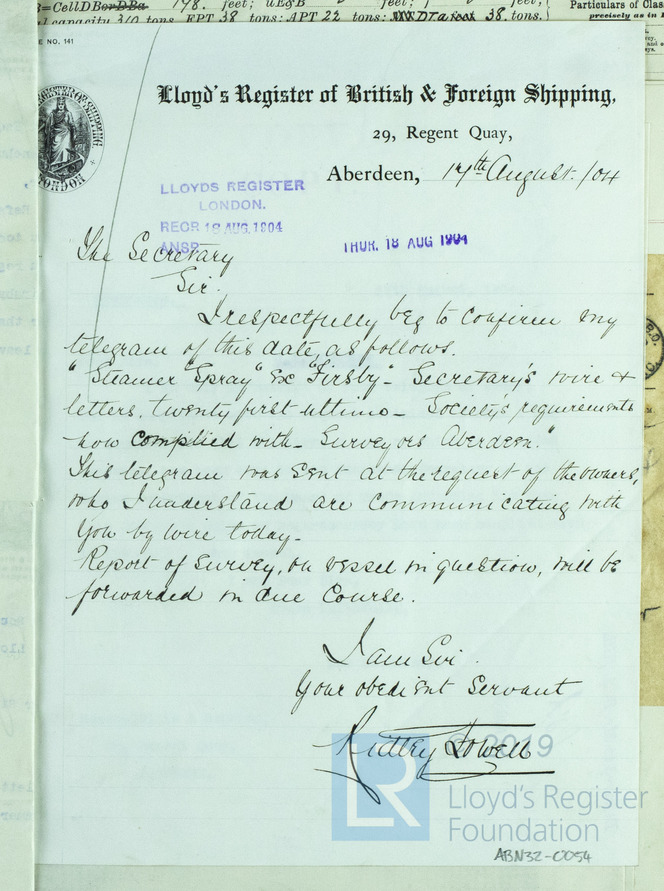 178. feet; uE&B feet; feet;
capacity 310 tons: FPT 38 tons: APT 22 tons: 38. tons.
Particulars of Clas
precisely as in
E NO. 141
Lloyd's Register of British & Foreign Shipping,
29, Regent Quay,
Aberdeen, 17th August /04
LLOYDS REGISTER
LONDON.
RECR 18 AUG. 1904
ANSR
THUR. 18 AUG 1904
The Secretary
Sir.
I respectfully beg to confirm my
telegram of this date, as follows.
"Steamer "Spray" Ex "Firsby" - Secretary's wire &
letters, twenty first ultimo - Society's requirements
now complied with - Surveyors Aberdeen."
This telegram was sent at the request of the owners,
who I understand are communicating with
you by wire today -
Report of Survey, on vessel in question, will be
forwarded in due Course.
I am Sir.
Your obedient Servant
Ridley Howell
© 2019
LR
Lloyd's Register
Foundation
ABN32-0054